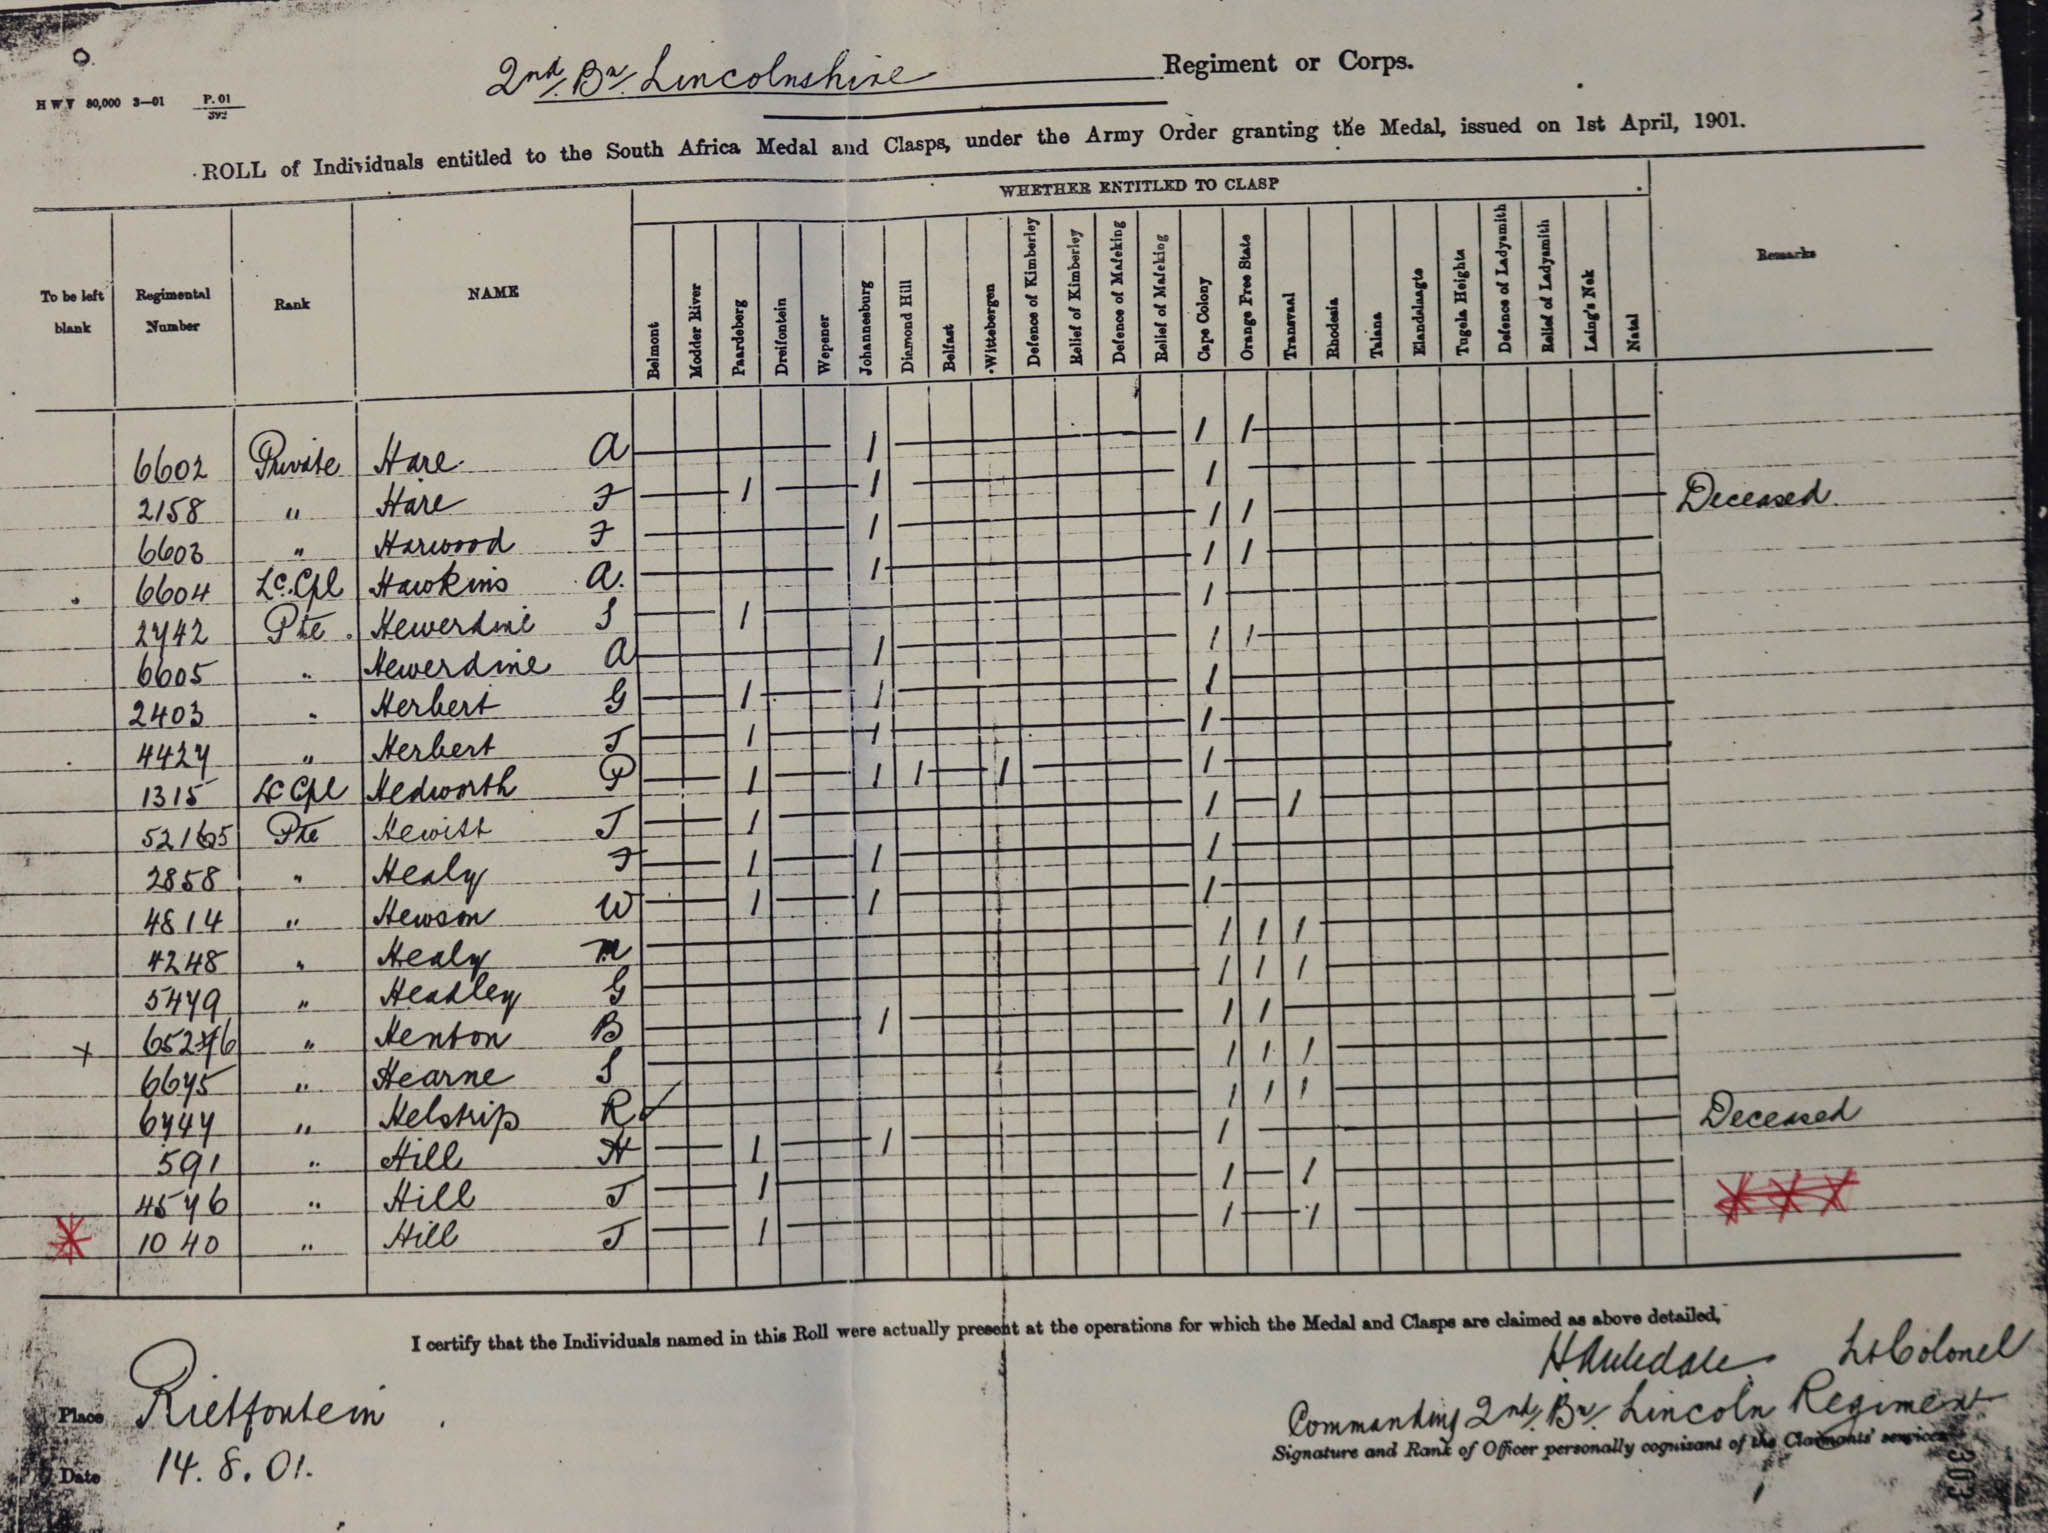 2nd. Bn. Lincolnshire Regiment or Corps.
H W V 80,000 3—01 P. 01
392
ROLL of Individuals entitled to the South Africa Medal and Clasps, under the Army Order granting the Medal, issued on 1st April, 1901.
WHETHER ENTITLED TO CLASP
To be left blank Regimental Number Rank NAME Belmont Modder River Paardeberg Dreifontein Wepener Johannesburg Diamond Hill Belfast Wittebergen Defence of Kimberley Relief of Kimberley Defence of Mafeking Relief of Mafeking Cape Colony Orange Free State Transvaal Rhodesia Talana Elandslaagte Tugela Heights Defence of Ladysmith Relief of Ladysmith Laing's Nek Natal Remarks
6602 Private Hare A 1 1 1
2158 " Hare F 1 1 1 Deceased
6603 " Harwood F 1 1 1
6604 Lc. Cpl Hawkins A. 1 1 1
2742 Pte Hewerdine S 1 1
6605 " Hewerdine A 1 1 1
2403 " Herbert G 1 1 1
4427 " Herbert J 1 1 1
1315 Lc Cpl Hedworth P 1 1 1 1 1
Pte Hewitt J 1 1 1
2858 " Healy F 1 1 1
4814 " Hewson W 1 1 1
4248 " Healy M 1 1 1
5479 " Headley G 1 1 1
" Henton B 1 1 1
6675 " Hearne S 1 1 1
6747 " Helstrip R 1 1 1
591 " Hill H 1 1 1 Deceased
4576 " Hill J 1 1 1
1040 " Hill J 1 1 1
I certify that the Individuals named in this Roll were actually present at the operations for which the Medal and Clasps are claimed as above detailed,
Lt Colonel
Place Rietfontein
Commanding 2nd. Bn. Lincoln Regiment
Signature and Rank of Officer personally cognizant of the Claimants' services
Date 14. 8. 01.
303